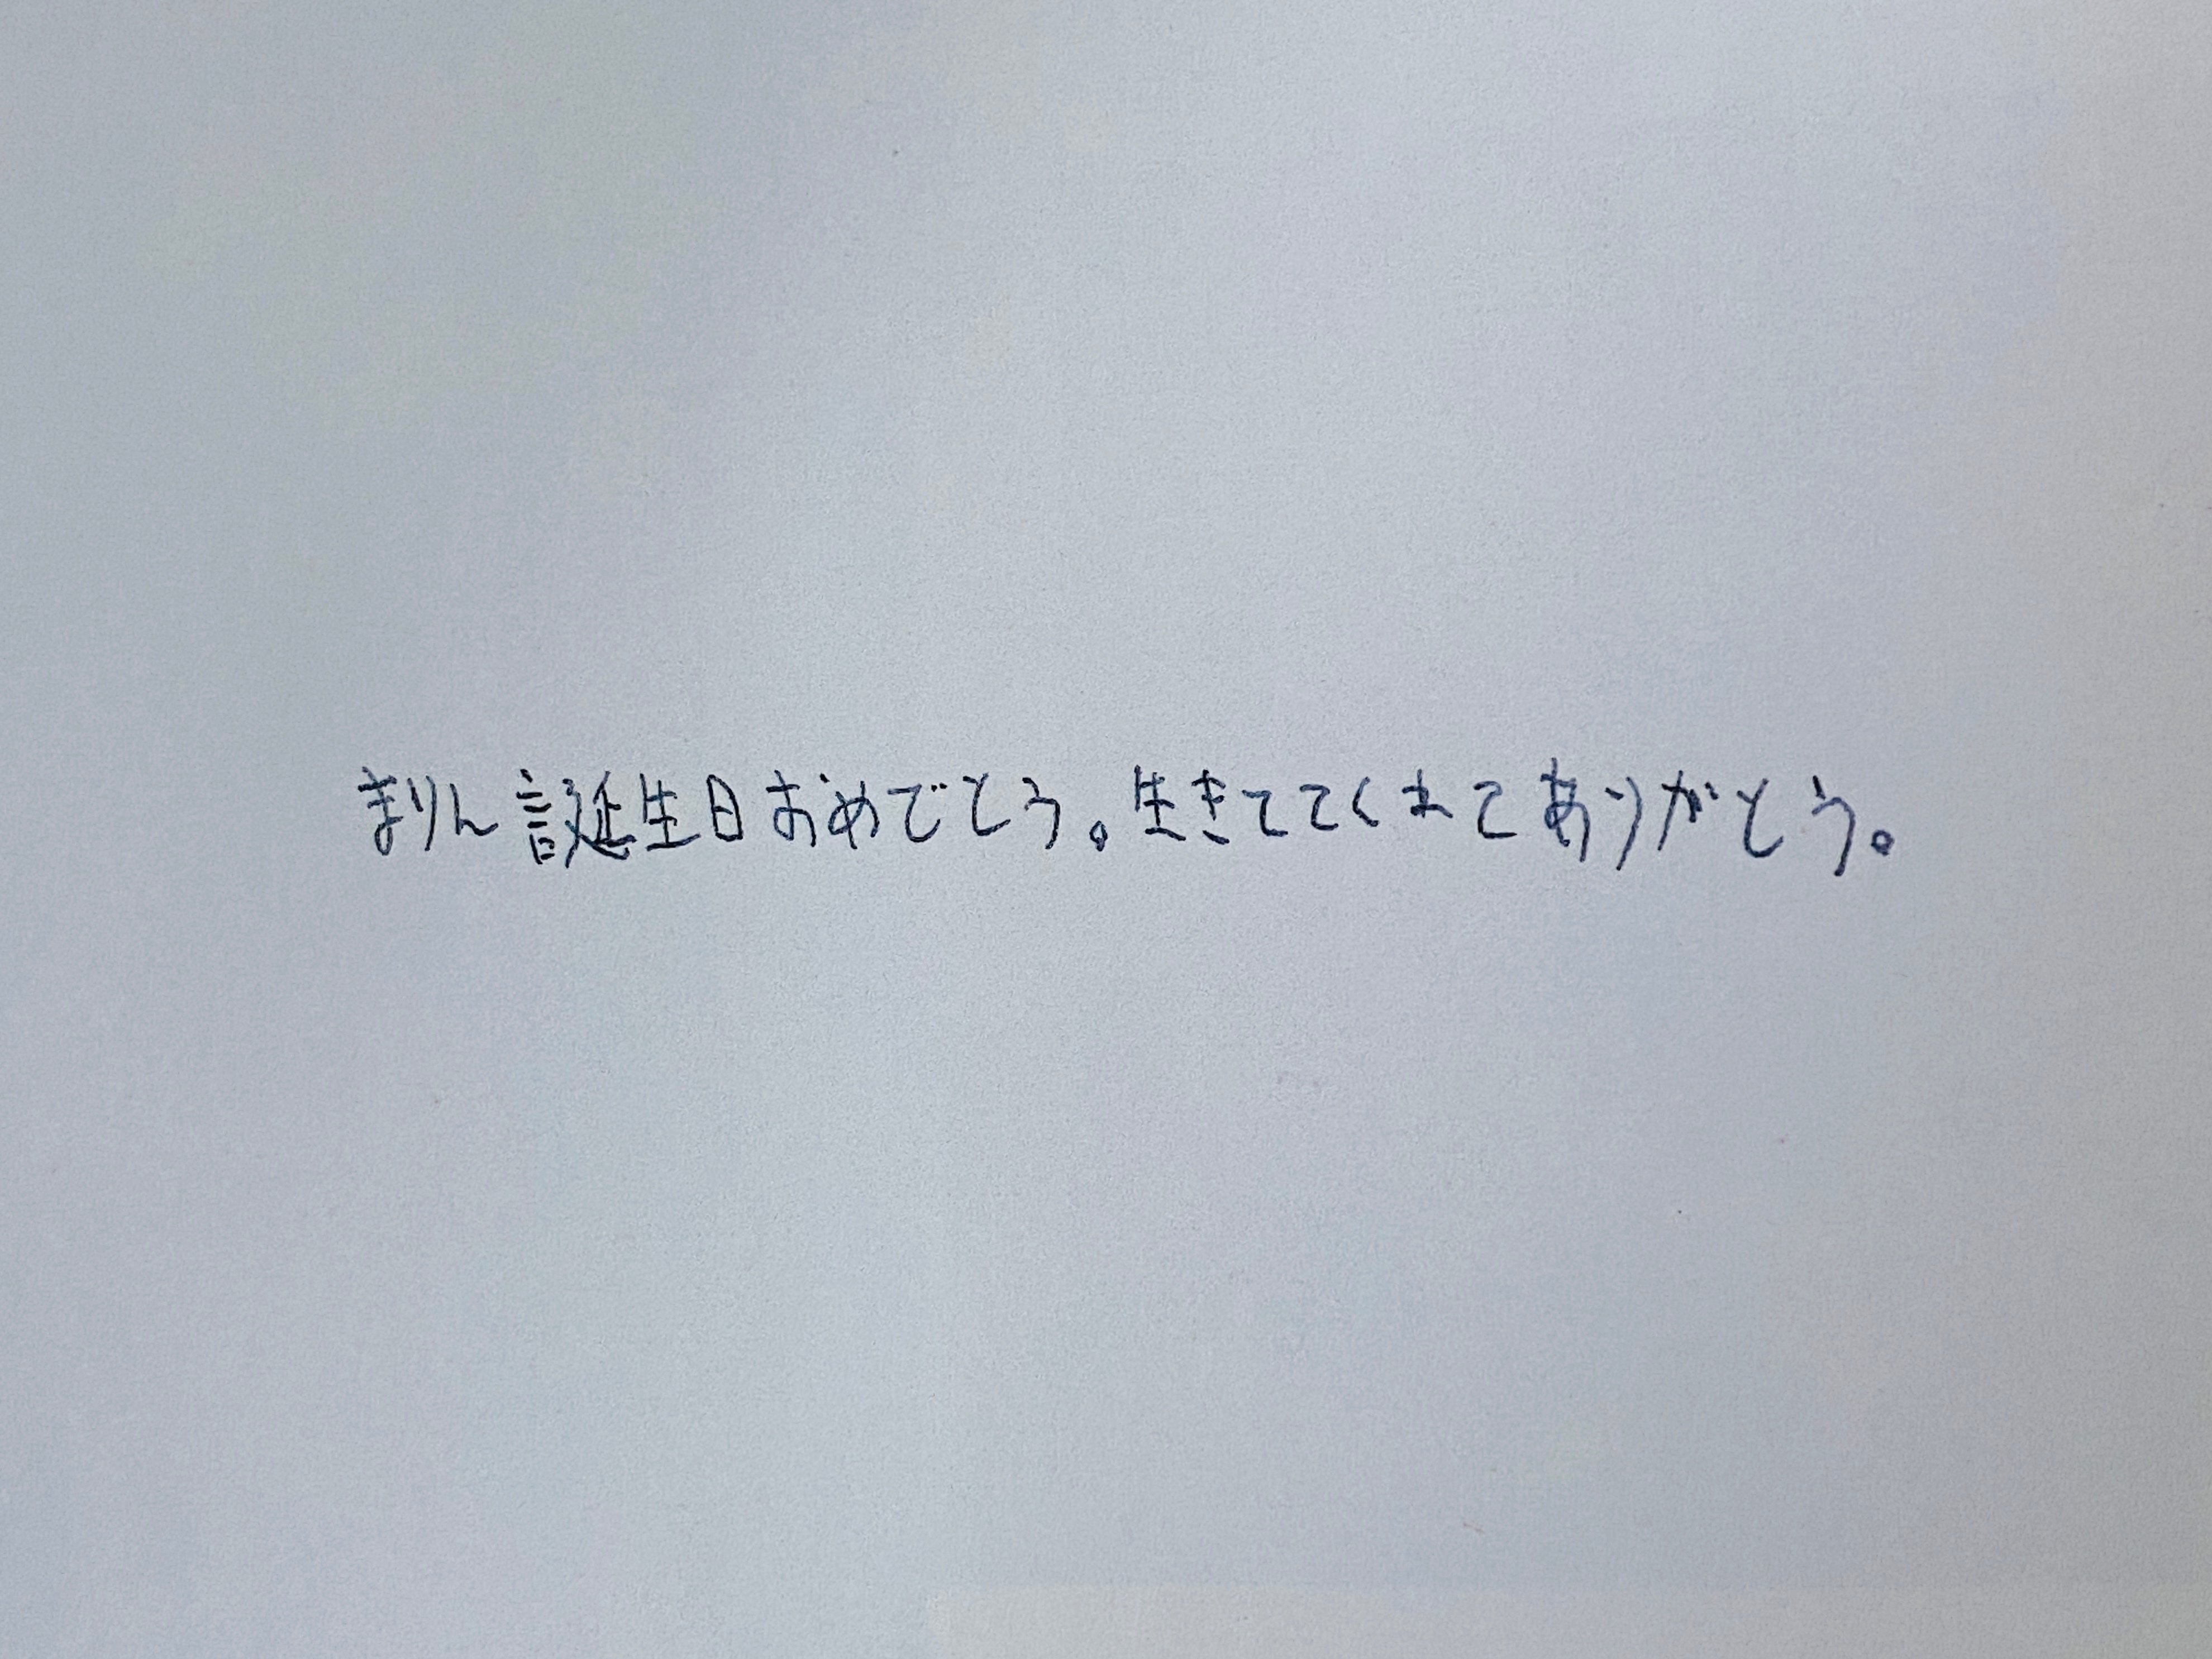 まりん誕生日おめでとう。生きててくれてありがとう。